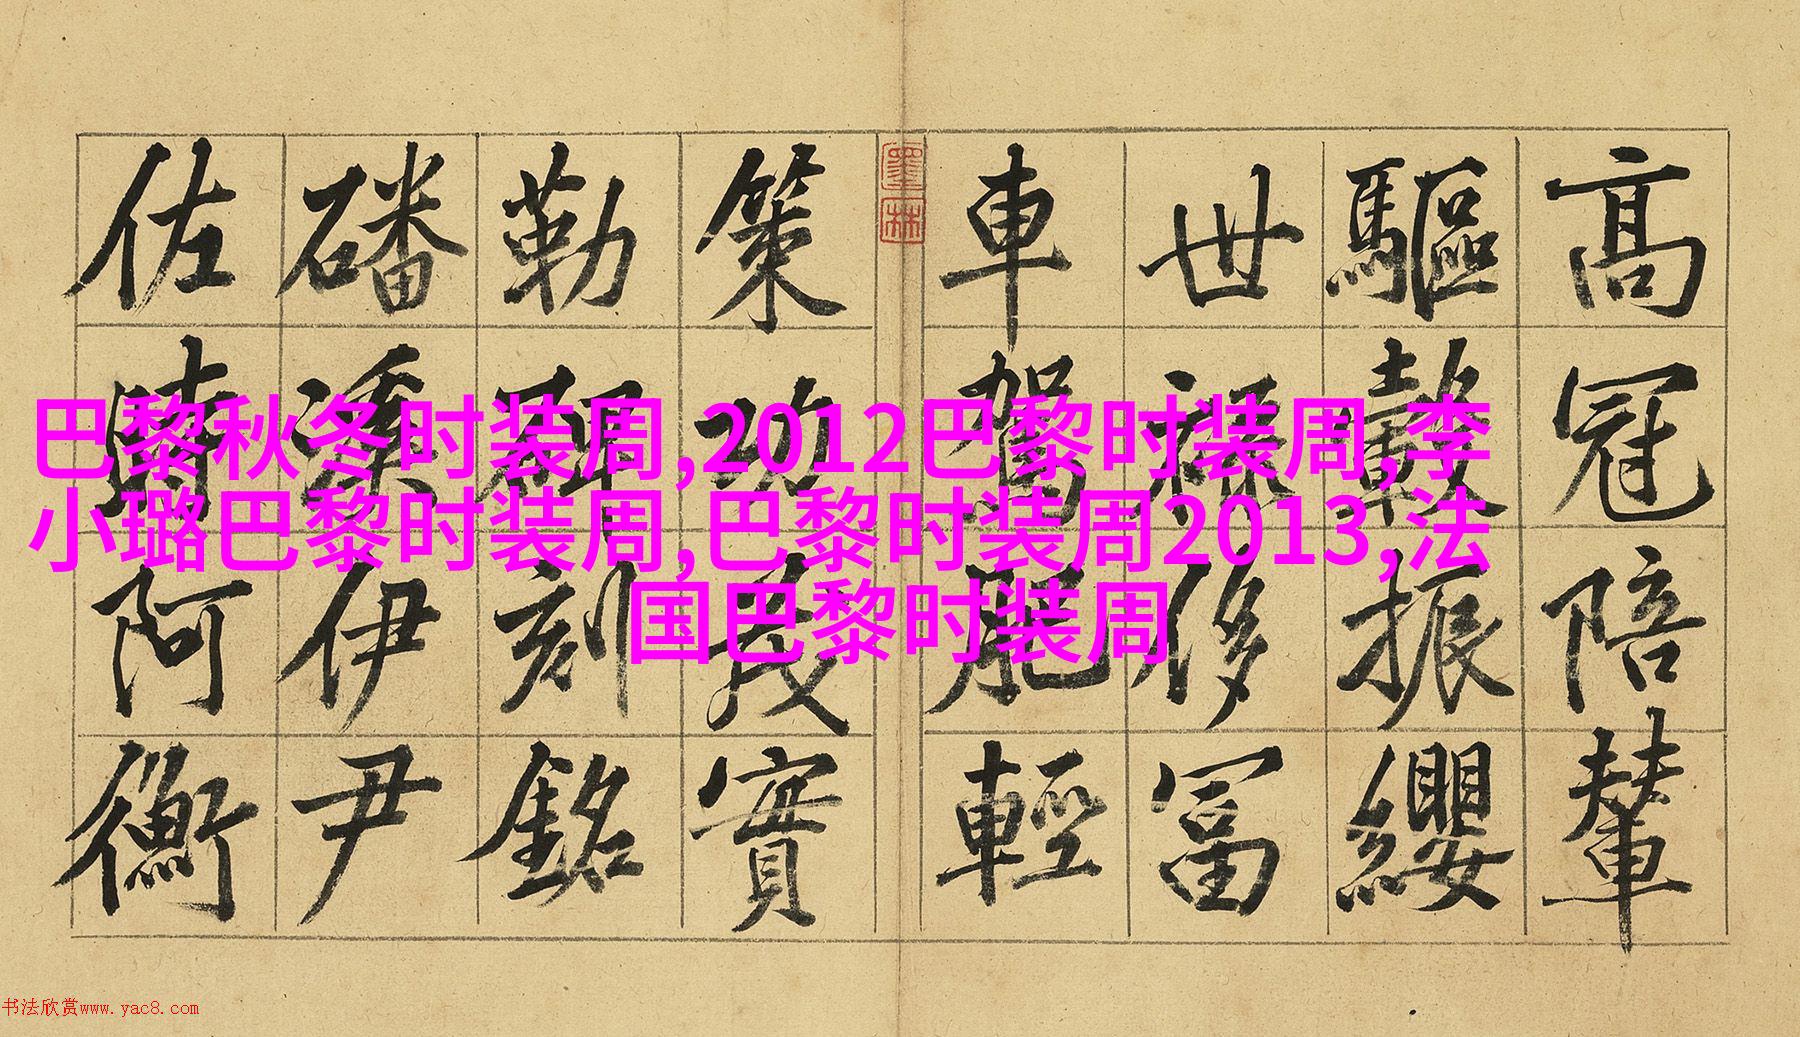 高冠陪輦
驅轂振纓
世祿侈富
車駕肥輕
策功茂實
勒碑刻銘
磻溪伊尹
佐時阿衡
墨林
巴黎秋冬时装周,2012巴黎时装周,李
小璐巴黎时装周,巴黎时装周2013,法
国巴黎时装周
书法欣赏www.yac8.com